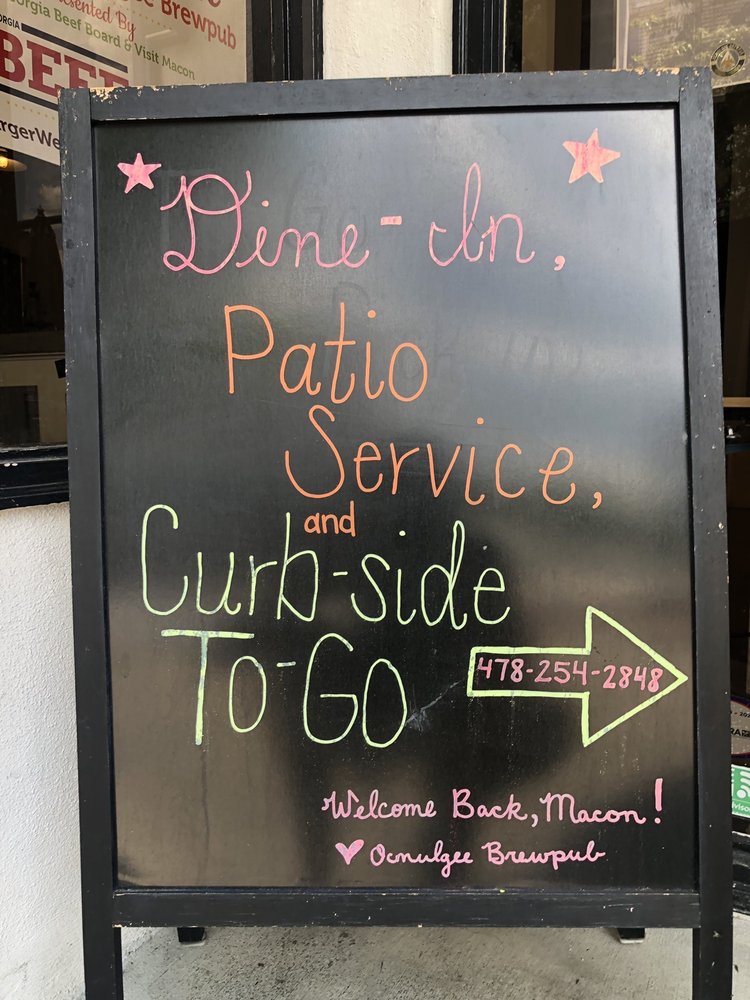 Brewpub
resented By
eorgia Beef Board & Visit Macon
ORGIA
BEEF
rgerWe
Dine-In,
Patio
Service,
and
Curb-side
To-Go
478-254-2848
Welcome Back, Macon!
Ocmulgee Brewpub